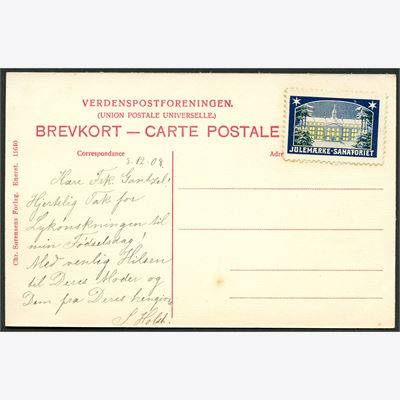 VERDENSPOSTFORENINGEN.
(UNION POSTALE UNIVERSELLE.)
BREVKORT — CARTE POSTALE
Correspondance
Adr
3.12.09.
Kære Frk. Gantzel!
Hjertelig Tak for
Lykønskningen til
min Fødselsdag!
Med venlig Hilsen
til Deres Moder og
Dem fra Deres hengivne
S. Holst.
Chr. Sørensens Forlag. Eneret. 11640
JULEMÆRKE-SANATORIET